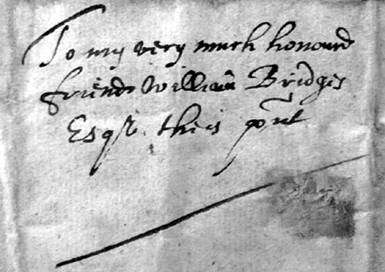 To my very much honourd
friende William Bridges
Esqr. theis pnt